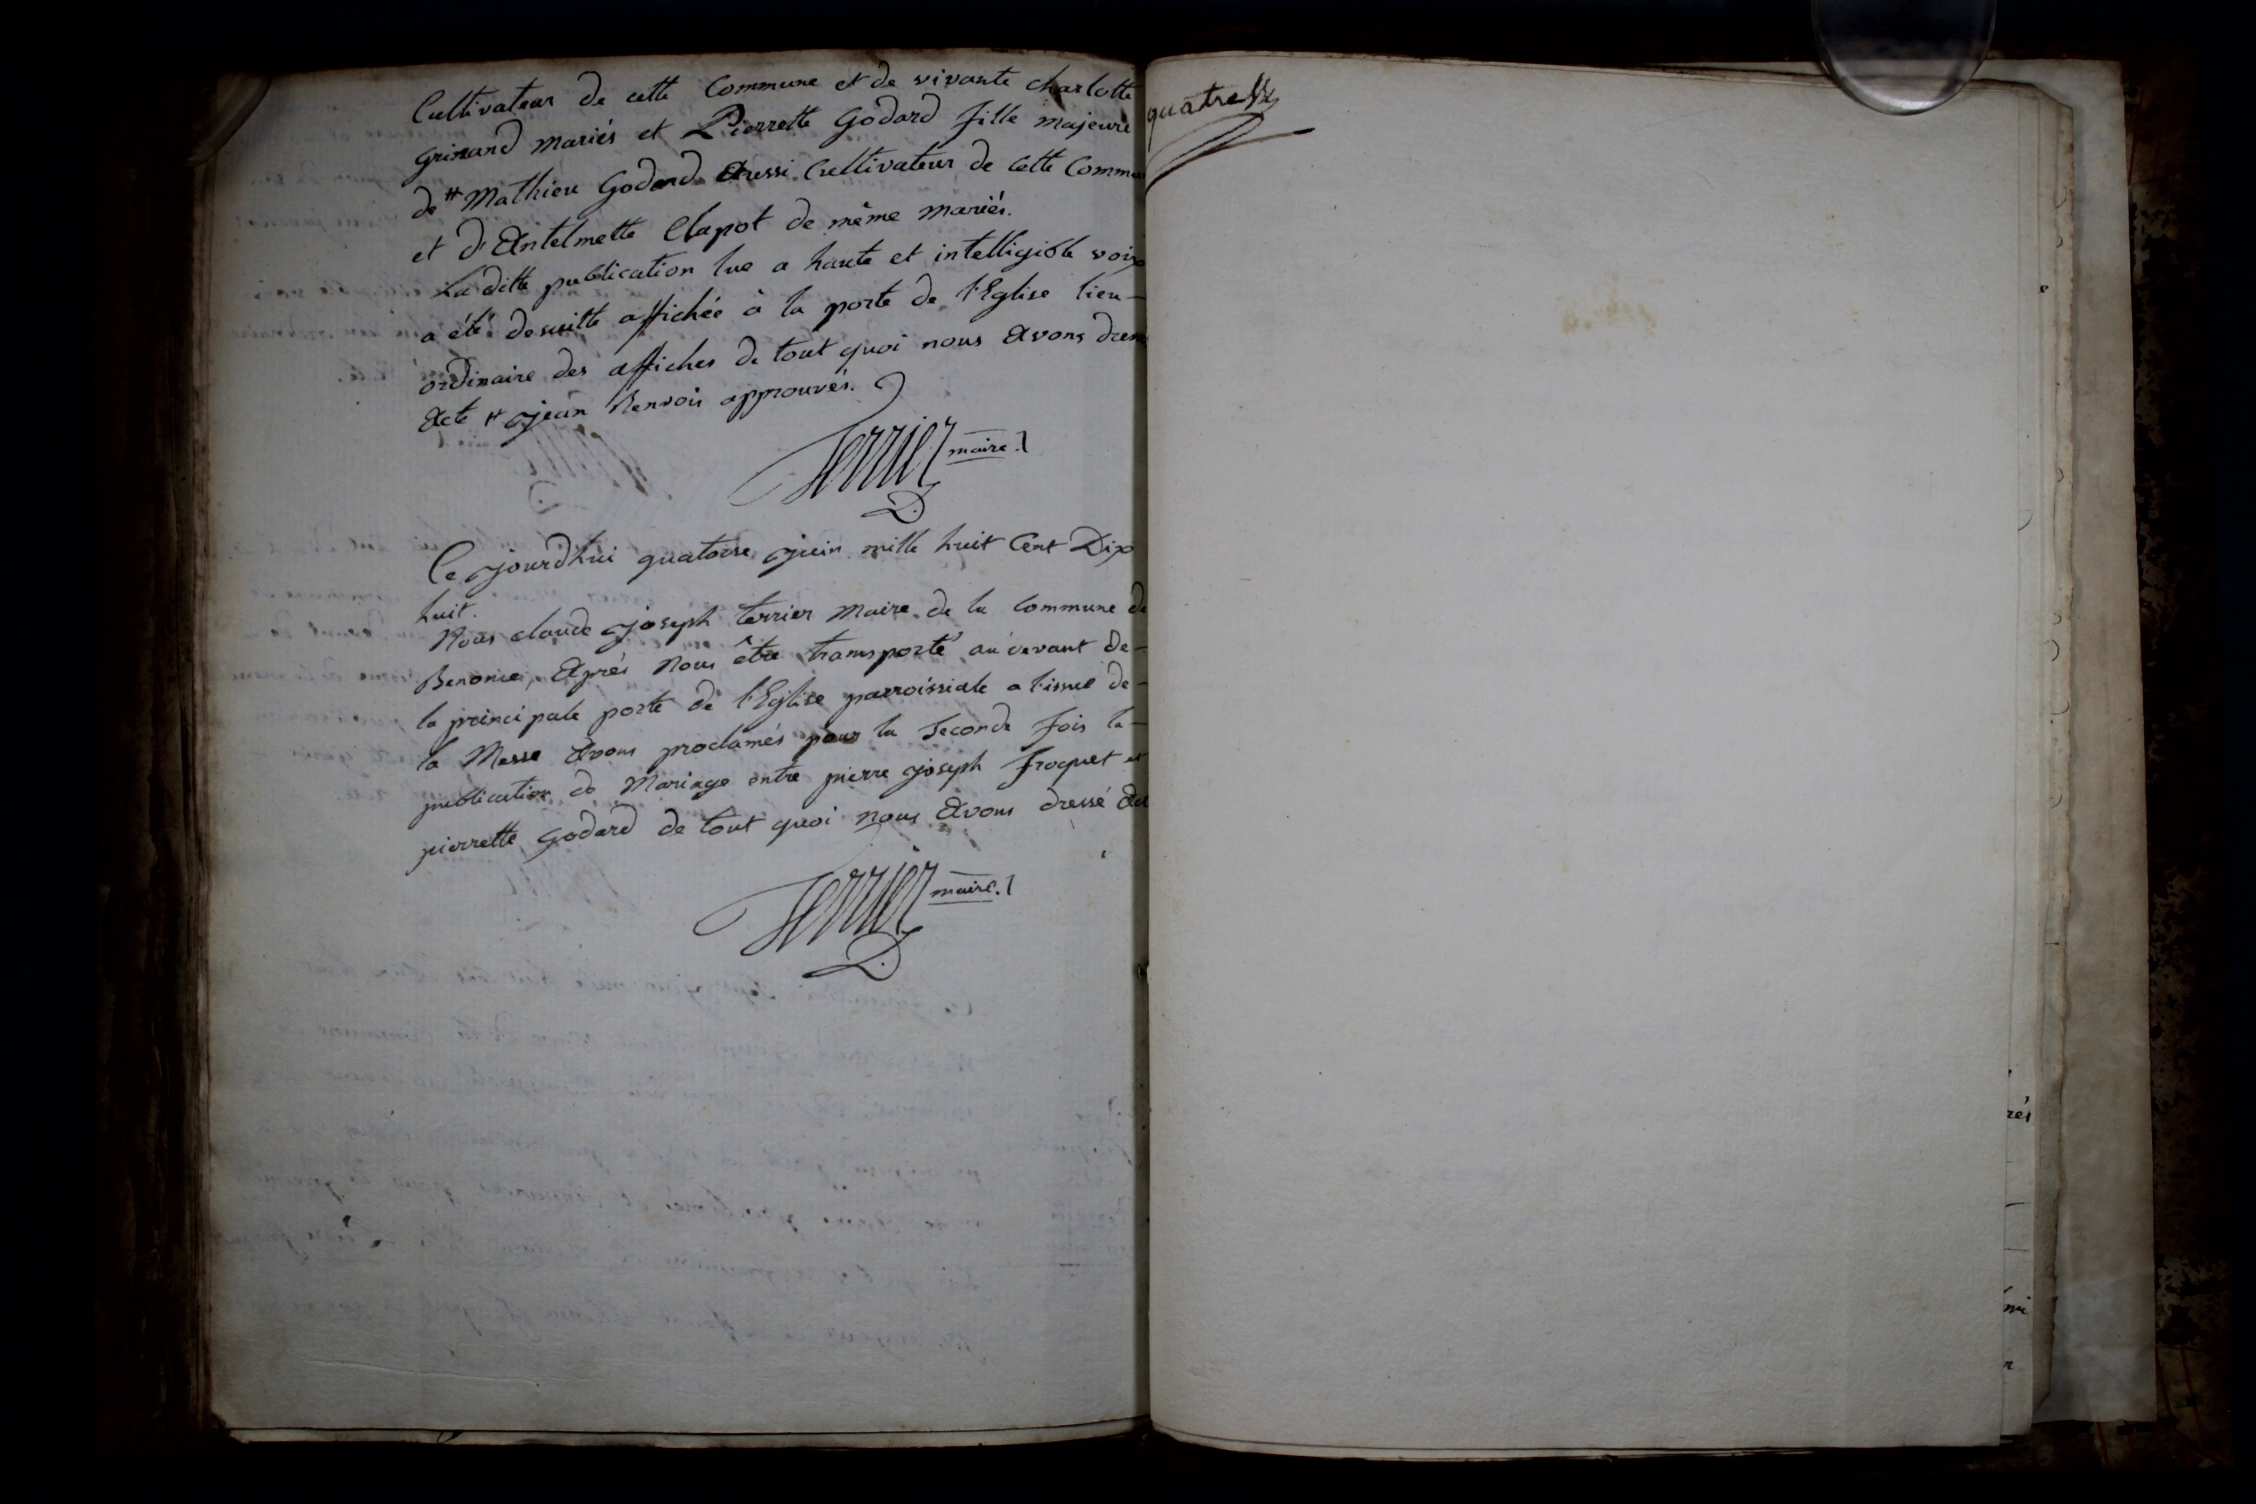 Cultivateur de cette Commune et de vivante charlotte
Grinand mariés et Pierrette Godard fille majeure
de # Mathieu Godard Aussi Cultivateur de Cette Commu
et d'Antelmette Clapot de même mariés.
La ditte publication lue a haute et intelligible voix
a été desuitte affichée à la porte de l'Eglise lieu-
ordinaire des affiches de tout quoi nous Avons dressé
Acte # jean Renvoi approuvés.
Terrier maire.
Ce jourd'hui quatorse juin mille huit Cent Dix
huit.
Nous claude joseph terrier Maire de la Commune de
Benonce, Après Nous être transporté au devant de-
la principale porte de l'Eglise parroissiale a l'issue de-
la Messe Avons proclamés pour la Seconde fois la-
publication de Mariage entre pierre joseph Froquet et
pierrette Godard de tout quoi nous Avons dressé Act
Terrier maire.
quatre